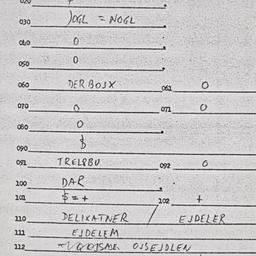 020
030 )OGL = NOGL
040 0
050 0
060 DERBOSX 061 0
070 0 071 0
080 0
090 $
091 TRELPBU 092 0
100 DAR
101 $ = + 102 +
110 DELIKATNER / EJDELER
111 EJDELEM
112 OJSEJDLEN